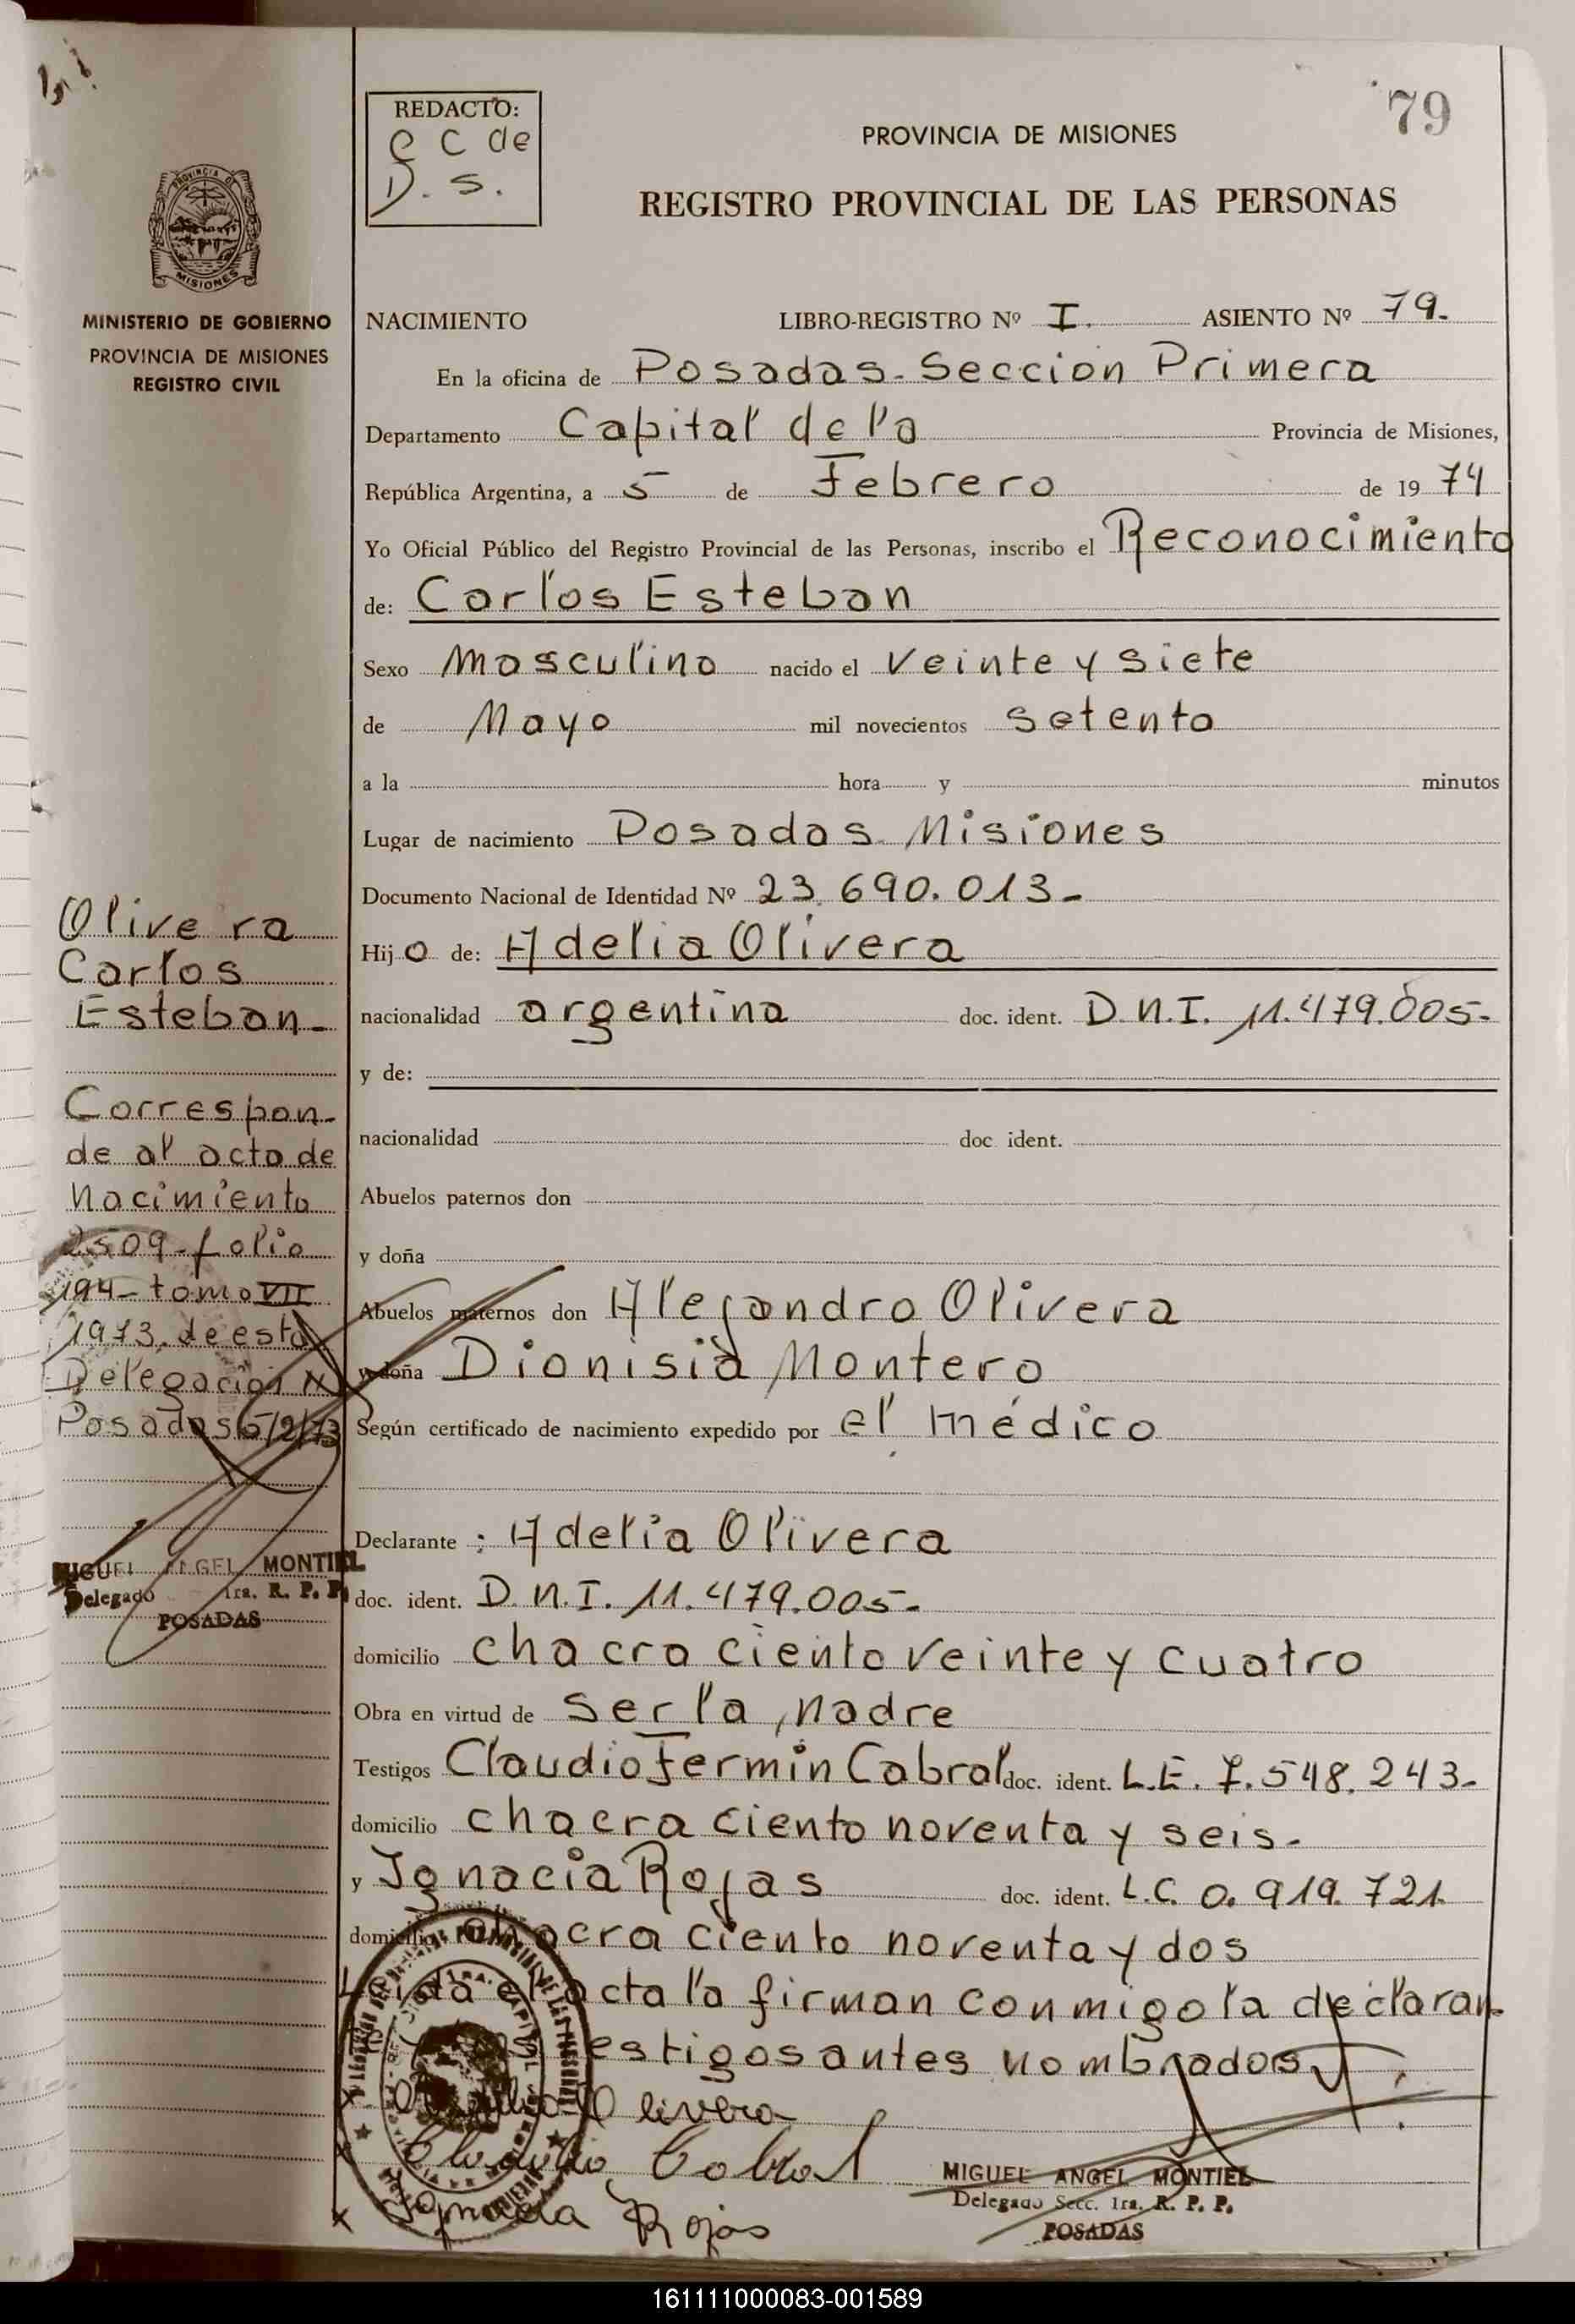 79
REDACTO:
C C de
D. S.
PROVINCIA DE MISIONES
REGISTRO PROVINCIAL DE LAS PERSONAS
PROVINCIA DE
MISIONES
MINISTERIO DE GOBIERNO
PROVINCIA DE MISIONES
REGISTRO CIVIL
NACIMIENTO LIBRO-REGISTRO Nº I. ASIENTO Nº 79.
En la oficina de Posadas-Seccion Primera
Departamento Capital de la Provincia de Misiones,
República Argentina, a 5 de Febrero de 1974
Yo Oficial Público del Registro Provincial de las Personas, inscribo el Reconocimiento
de: Carlos Esteban
Sexo Masculino nacido el veinte y siete
de Mayo mil novecientos setenta
a la hora y minutos
Lugar de nacimiento Posadas Misiones
Documento Nacional de Identidad Nº 23.690.013-
Hijo de: Adelia Olivera
nacionalidad argentina doc. ident. D.N.I. 11.479.005-
y de:
nacionalidad doc. ident.
Abuelos paternos don
y doña
Abuelos maternos don Alejandro Olivera
y doña Dionisia Montero
Según certificado de nacimiento expedido por el médico
Declarante : Adelia Olivera
doc. ident. D.N.I. 11.479.005-
domicilio chacra ciento veinte y cuatro
Obra en virtud de ser la madre
Testigos Claudio Fermin Cabral doc. ident. L.E. 7.548.243-
domicilio chacra ciento noventa y seis-
y Ignacia Rojas doc. ident. L.C. 0.919.721
domicilio chacra ciento noventa y dos
Leida el acta la firman conmigo la declaran
testigos antes nombrados
Olivera
Claudio Cabral
Ignacia Rojas
MIGUEL ANGEL MONTIEL
Delegado Secc. 1ra. R. P. P.
POSADAS
Olivera
Carlos
Esteban-
Correspon-
de al acta de
nacimiento
2509-folio
194-tomo VII
1973.de esta
Delegacion
Posadas 5/2/73
MIGUEL ANGEL MONTIEL
Delegado 1ra. R. P. P.
POSADAS
161111000083-001589